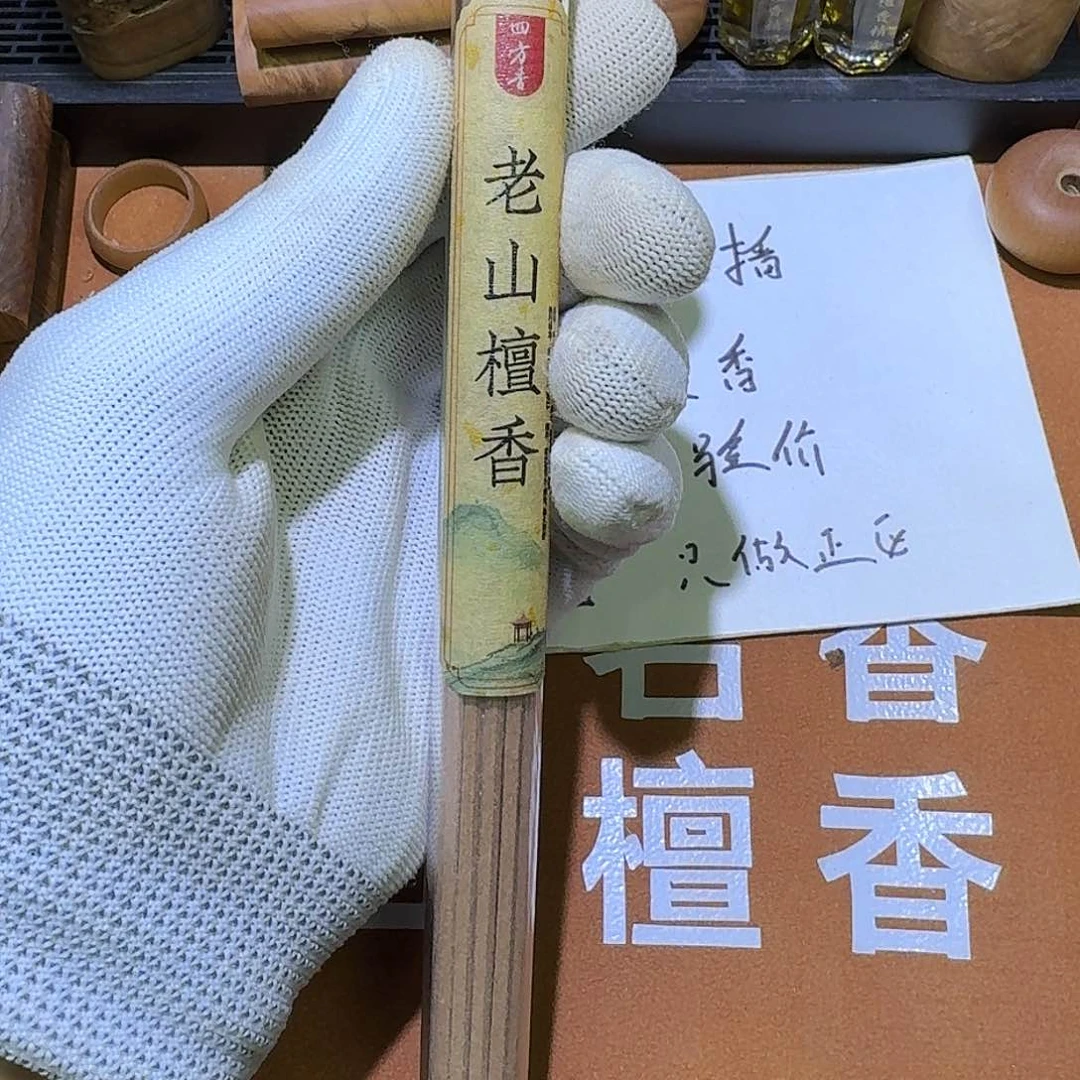 四方香
老山檀香
播
香
验价
只做正品
香
檀香